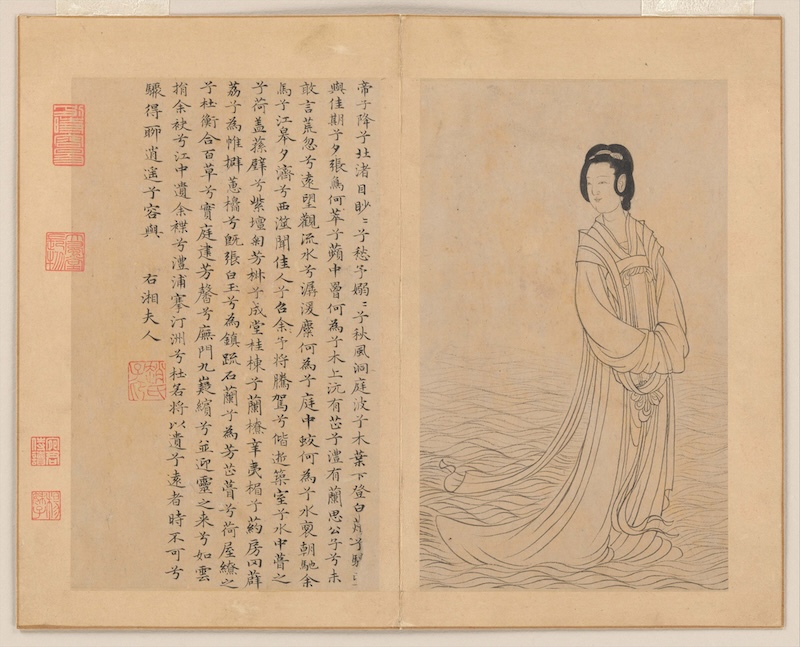 帝子降兮北渚目眇〻兮愁予嫋〻兮秋風洞庭波兮木葉下登白薠兮騁
與佳期兮夕張鳥何萃兮蘋中罾何為兮木上沅有芷兮澧有蘭思公子兮未
敢言荒忽兮遠望觀流水兮潺湲麋何為兮庭中蛟何為兮水裔朝馳余
馬兮江皋夕濟兮西澨聞佳人兮召余兮將騰駕兮偕逝築室兮水中葺之
兮荷蓋蓀壁兮紫壇匊芳椒兮成堂桂棟兮蘭橑辛夷楣兮葯房罔薜
荔兮為帷擗蕙櫋兮既張白玉兮為鎮疏石蘭兮為芳芷葺兮荷屋繚之
兮杜衡合百草兮實庭建芳馨兮廡門九嶷繽兮並迎靈之来兮如雲
捐余袂兮江中遺余褋兮澧浦搴汀洲兮杜若將以遺兮遠者時不可兮
驟得聊逍遥兮容與 右湘夫人